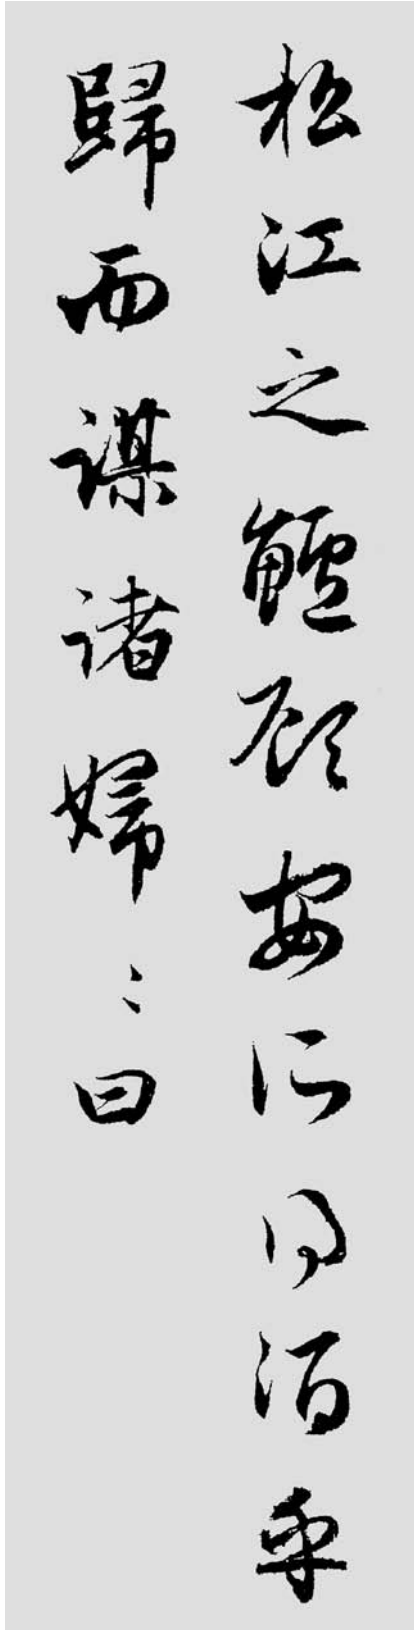 松江之鱸顧安所得酒乎
歸而謀諸婦〻曰